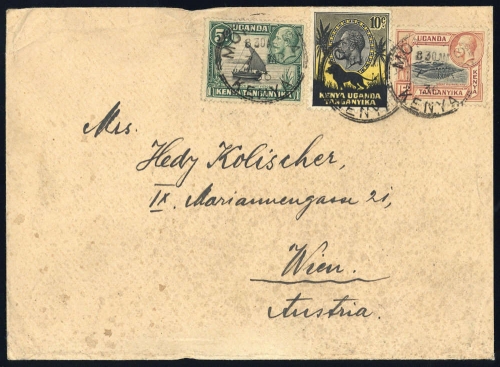 UGANDA
5c
KENYA TANGANYIKA
10c
KENYA UGANDA
TANGANYIKA
UGANDA
KENYA
TANGANYIKA
8 30
KENYA
KENYA
Mrs.
Hedy Kolischer,
IX. Mariannengasse 21,
Wien.
Austria.